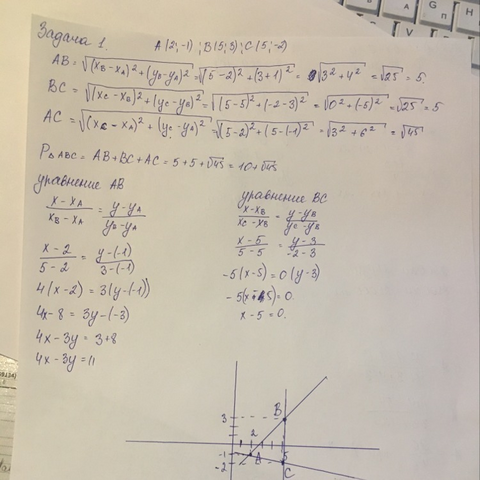 Задача 1. A(2;-1) ; B(5;3) ; C(5;-2)
AB = √((x_B-x_A)²+(y_B-y_A)²) = √((5-2)²+(3+1)²) = √(3²+4²) = √25 = 5.
BC = √((x_C-x_B)²+(y_C-y_B)²) = √((5-5)²+(-2-3)²) = √(0²+(-5)²) = √25 = 5
AC = √((x_C-x_A)²+(y_C-y_A)²) = √((5-2)²+(5-(-1)²) = √(3²+6²) = √45
P△ABC = AB+BC+AC = 5+5+√45 = 10+√45
уравнение AB
(x-x_A)/(x_B-x_A) = (y-y_A)/(y_B-y_A)
(x-2)/(5-2) = (y-(-1))/(3-(-1))
4(x-2) = 3(y-(-1))
4x-8 = 3y-(-3)
4x-3y = 3+8
4x-3y = 11
уравнение BC
(x-x_B)/(x_C-x_B) = (y-y_B)/(y_C-y_B)
(x-5)/(5-5) = (y-3)/(-2-3)
-5(x-5) = 0(y-3)
-5(x-5) = 0.
x-5 = 0.
3 B
2
-1 A 5
-2 C